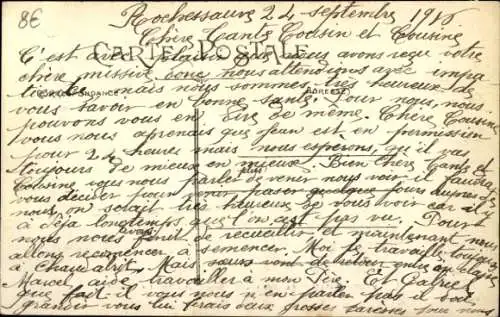 8€
Rochessauve 24 septembre 1915
Chère Tante Cousin et Cousine
CARTE POSTALE
C'est avec plaisir que nous avons reçu votre
chère missive donc nous attendions avec impa
CORRESPONDANCE
ADRESSE
mais nous sommes très heureux de
vous savoir en bonne santé. Pour nous, nous
pouvons vous en dire de même. Chère Cousine
vous nous aprenais que Jean est en permission
pour 24 heures mais nous esperons, qu'il va
toujours de mieux en mieux. Bien chère Tante et
Cousine vous nous parler de venir nous voir il faudrait
vous décider pour venir passer quelque jours auprès de
nous, on serait très heureux de vous voir car il y
a déja longtemps que l'on c'est pas vu. Pour
nous nous avons finit de recueillir et maintenant nous
allons recommencer à semencer. Moi je travaille toujours
à
Mais
Marcel aide travailler à mon Père. Et Gabriel
que fait il vous nous n'en parler pas il doit
grandir vous lui ferais deux grosses caresses pour nous